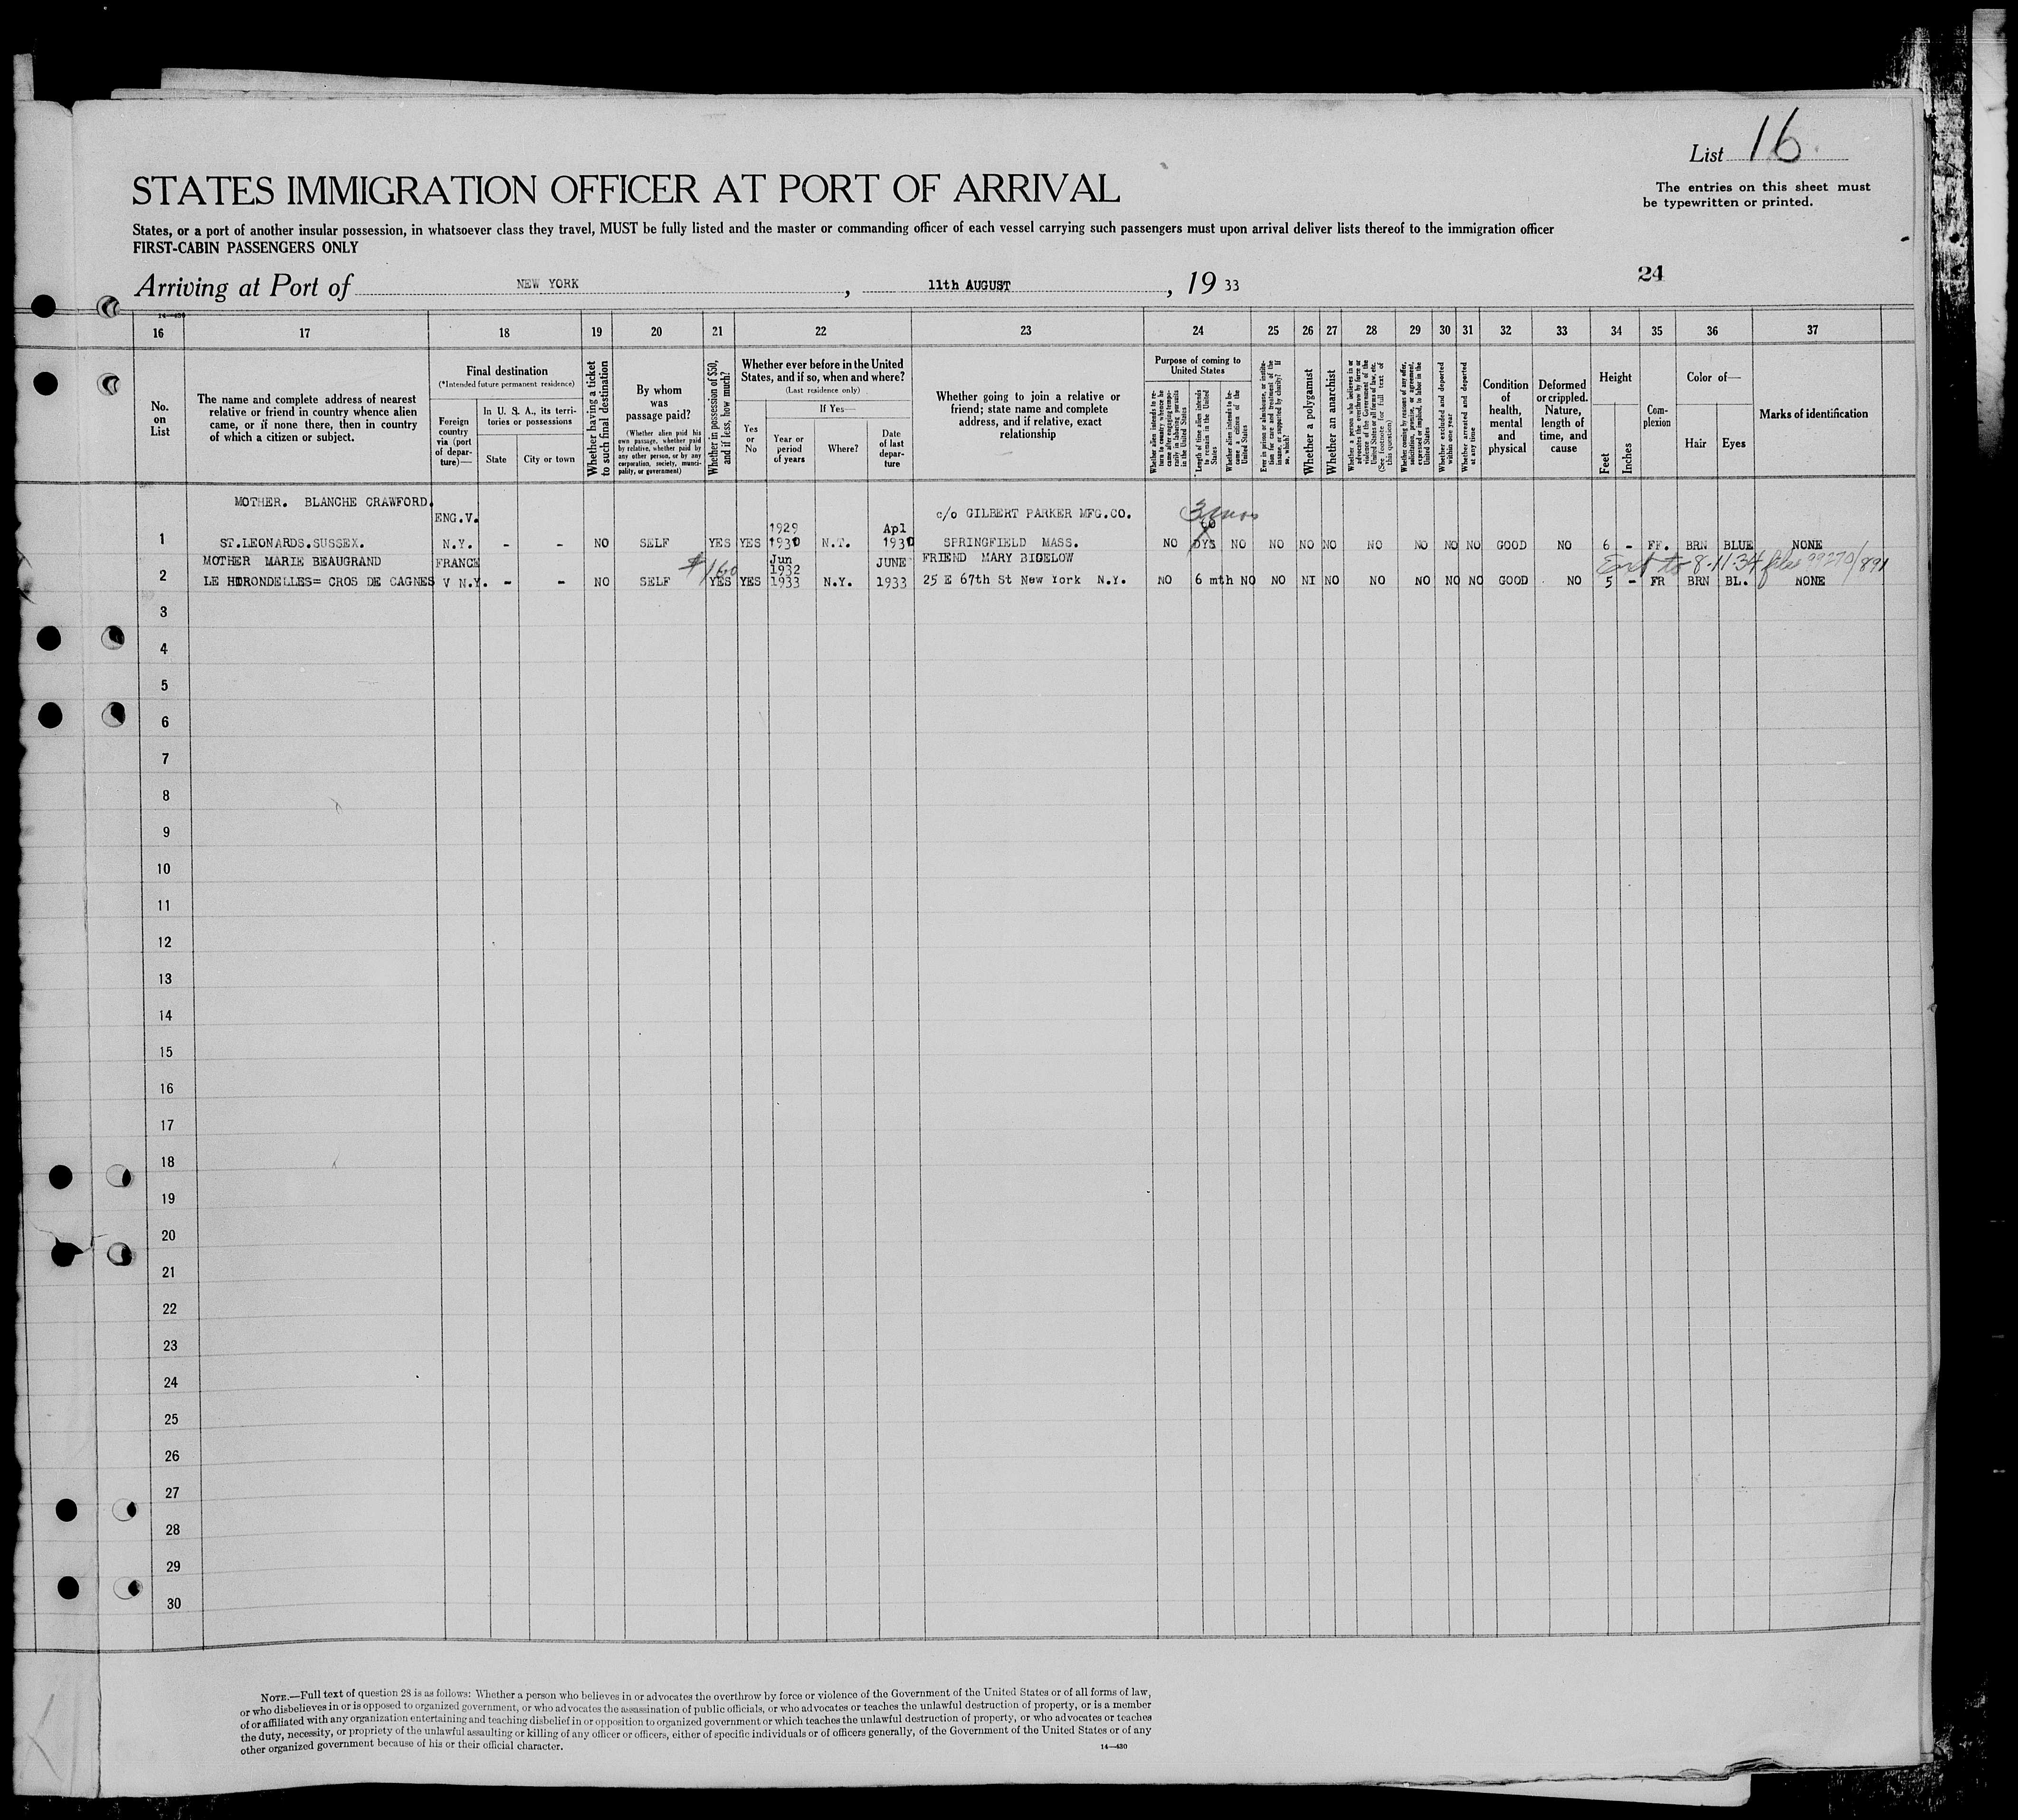 List 16
STATES IMMIGRATION OFFICER AT PORT OF ARRIVAL
The entries on this sheet must
be typewritten or printed.
States, or a port of another insular possession, in whatsoever class they travel, MUST be fully listed and the master or commanding officer of each vessel carrying such passengers must upon arrival deliver lists thereof to the immigration officer
FIRST-CABIN PASSENGERS ONLY
24
Arriving at Port of NEW YORK, 11th AUGUST, 19 33
14—430
16 17 18 19 20 21 22 23 24 25 26 27 28 29 30 31 32 33 34 35 36 37
No.
on
List
The name and complete address of nearest
relative or friend in country whence alien
came, or if none there, then in country
of which a citizen or subject.
Final destination
(*Intended future permanent residence)
Foreign
country
via (port
of depar-
ture)—
In U. S. A., its terri-
tories or possessions
State
City or town
Whether having a ticket
to such final destination
By whom
was
passage paid?
(Whether alien paid his
own passage, whether paid
by relative, whether paid by
any other person, or by any
corporation, society, munici-
pality, or government)
Whether in possession of $50,
and if less, how much?
Whether ever before in the United
States, and if so, when and where?
(Last residence only)
Yes
or
No
If Yes—
Year or
period
of years
Where?
Date
of last
depar-
ture
Whether going to join a relative or
friend; state name and complete
address, and if relative, exact
relationship
Purpose of coming to
United States
Whether alien intends to re-
turn to country whence he
came after engaging tempo-
rarily in laboring pursuits
in the United States
Length of time alien intends
to remain in the United
States
Whether alien intends to be-
come a citizen of the
United States
Ever in prison or almshouse, or institu-
tion for care and treatment of the
insane, or supported by charity? If
so, which?
Whether a polygamist
Whether an anarchist
Whether a person who believes in or
advocates the overthrow by force or
violence of the Government of the
United States or all forms of law, etc.
(See footnote for full text of
this question)
Whether coming by reason of any offer,
solicitation, promise, or agreement,
expressed or implied, to labor in the
United States
Whether excluded and deported
within one year
Whether arrested and deported
at any time
Condition
of
health,
mental
and
physical
Deformed
or crippled.
Nature,
length of
time, and
cause
Height
Feet
Inches
Com-
plexion
Color of—
Hair
Eyes
Marks of identification
MOTHER. BLANCHE CRAWFORD.
ENG.V. 1929 Apl c/o GILBERT PARKER MFG.CO. 3 mos
60
1 ST.LEONARDS.SUSSEX. N.Y. - - NO SELF YES YES 1930 N.T. 1930 SPRINGFIELD MASS. NO DYS NO NO NO NO NO NO NO NO GOOD NO 6 - FF. BRN BLUE NONE
MOTHER MARIE BEAUGRAND FRANCE $160 Jun 1932 JUNE FRIEND MARY BIGELOW Ext to 8-11-34 file 99270/891
2 LE HDRONDELLES= CROS DE CAGNES V N.Y. - - NO SELF YES YES 1933 N.Y. 1933 25 E 67th St New York N.Y. NO 6 mth NO NO NI NO NO NO NO NO GOOD NO 5 - FR BRN BL. NONE
3
4
5
6
7
8
9
10
11
12
13
14
15
16
17
18
19
20
21
22
23
24
25
26
27
28
29
30
NOTE.—Full text of question 28 is as follows: Whether a person who believes in or advocates the overthrow by force or violence of the Government of the United States or of all forms of law,
or who disbelieves in or is opposed to organized government, or who advocates the assassination of public officials, or who advocates or teaches the unlawful destruction of property, or is a member
of or affiliated with any organization entertaining and teaching disbelief in or opposition to organized government or which teaches the unlawful destruction of property, or who advocates or teaches
the duty, necessity, or propriety of the unlawful assaulting or killing of any officer or officers, either of specific individuals or of officers generally, of the Government of the United States or of any
other organized government because of his or their official character.
14—430